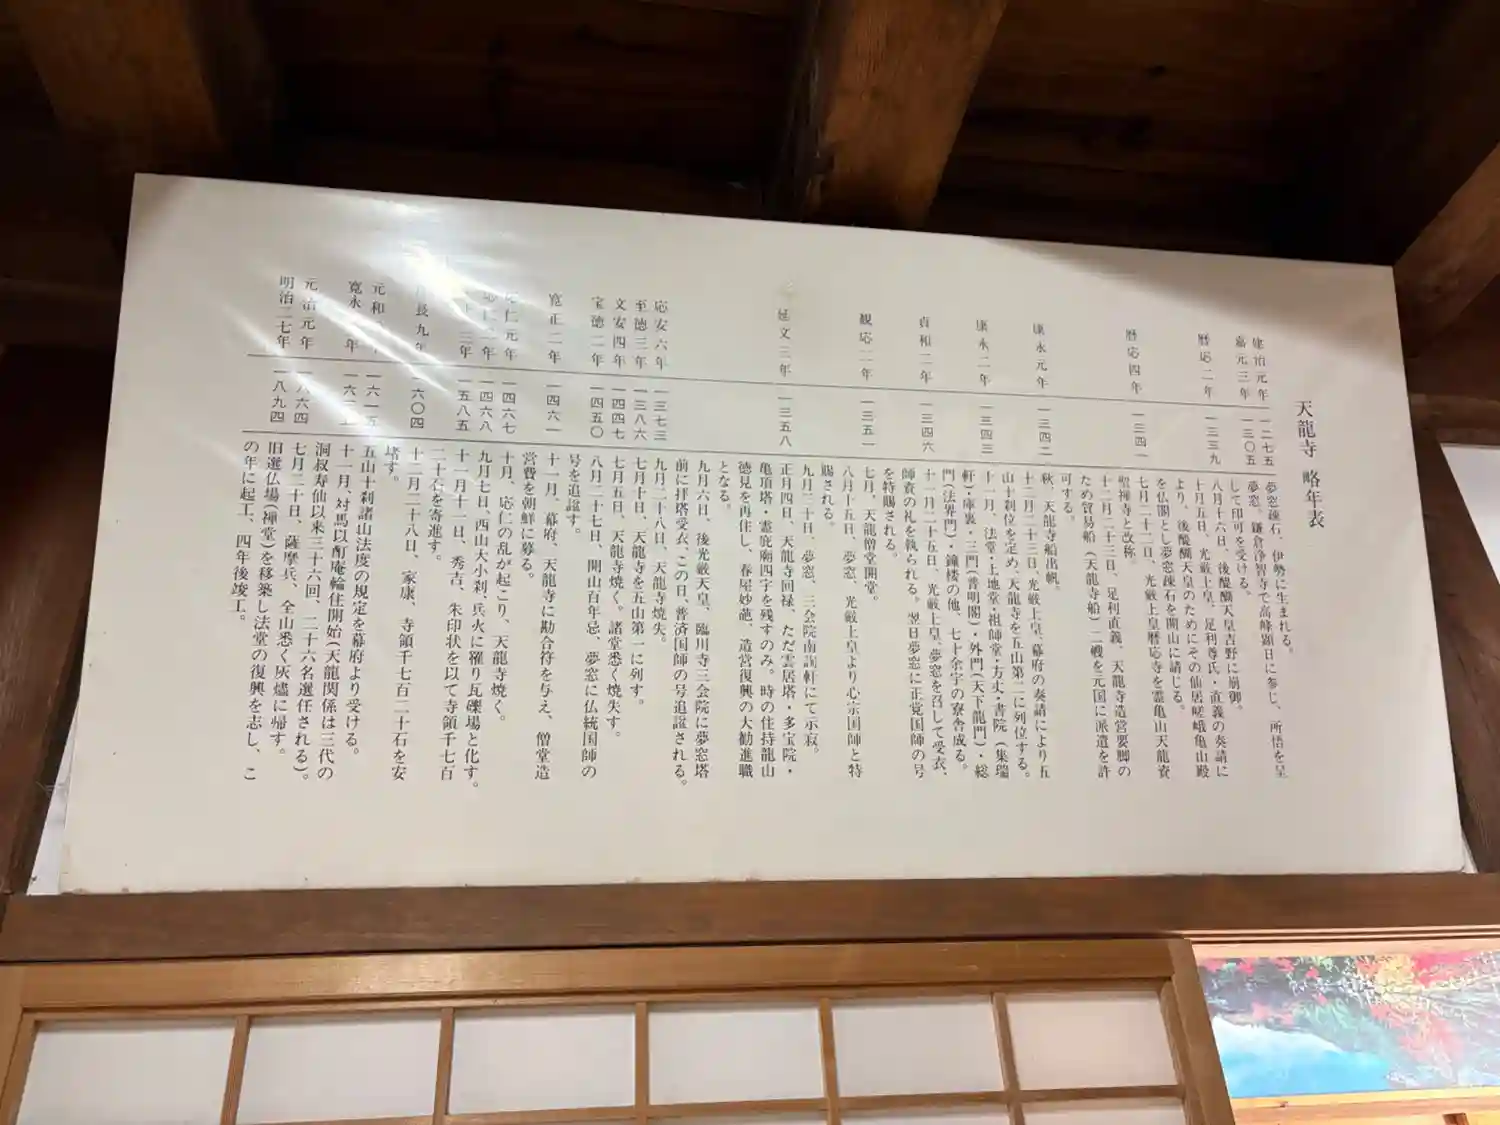 天龍寺 略年表
建治元年 一二七五 夢窓疎石、伊勢に生まれる。
嘉元三年 一三〇五 夢窓、鎌倉浄智寺で高峰顕日に参じ、所悟を呈
して印可を受ける。
暦応二年 一三三九 八月十六日、後醍醐天皇吉野に崩御。
十月五日、光厳上皇、足利尊氏・直義の奏請に
より、後醍醐天皇のためにその仙居嵯峨亀山殿
を仏閣とし夢窓疎石を開山に請じる。
暦応四年 一三四一 七月二十二日、光厳上皇暦応寺を霊亀山天龍資
聖禅寺と改称。
十二月二十三日、足利直義、天龍寺造営要脚の
ため貿易船（天龍寺船）二艘を元国に派遣を許
可する。
康永元年 一三四二 秋、天龍寺船出帆。
十二月二十三日、光厳上皇、幕府の奏請により五
山十刹位を定め、天龍寺を五山第二に列位する。
康永二年 一三四三 十一月、法堂・土地堂・祖師堂・方丈・書院（集瑞
軒）・庫裏・三門（普明閣）・外門（天下龍門）・総
門（法界門）・鐘楼の他、七十余宇の寮舎成る。
貞和二年 一三四六 十一月二十五日、光厳上皇、夢窓を召して受衣、
師資の礼を執られる。翌日夢窓に正覚国師の号
を特賜される。
観応二年 一三五一 七月、天龍僧堂開堂。
八月十五日、夢窓、光厳上皇より心宗国師と特
賜される。
九月三十日、夢窓、三会院南詢軒にて示寂。
延文三年 一三五八 正月四日、天龍寺回禄、ただ雲居塔・多宝院・
亀頂塔・霊庇廟四字を残すのみ。時の住持龍山
徳見を再住し、春屋妙葩、造営復興の大勧進職
となる。
九月六日、後光厳天皇、臨川寺三会院に夢窓塔
前に拝塔受衣、この日、普済国師の号追諡される。
応安六年 一三七三 九月二十八日、天龍寺焼失。
至徳三年 一三八六 七月十日、天龍寺を五山第一に列す。
文安四年 一四四七 七月五日、天龍寺焼く。諸堂悉く焼失す。
宝徳二年 一四五〇 八月二十七日、開山百年忌、夢窓に仏統国師の
号を追諡す。
寛正二年 一四六一 十一月、幕府、天龍寺に勘合符を与え、僧堂造
営費を朝鮮に募る。
応仁元年 一四六七 十月、応仁の乱が起こり、天龍寺焼く。
応仁二年 一四六八 九月七日、西山大小刹、兵火に罹り瓦礫場と化す。
十三年 一五八五 十一月十一日、秀吉、朱印状を以て寺領千七百
二十石を寄進す。
長九年 一六〇四 十二月二十八日、家康、寺領千七百二十石を安
堵す。
元和 年 一六一五 五山十刹諸山法度の規定を幕府より受ける。
寛永 年 一六三 十一月、対馬以酊庵輪住開始（天龍関係は三代の
洞叔寿仙以来三十六回、二十六名選任される）。
元治元年 一八六四 七月二十日、薩摩兵、全山悉く灰燼に帰す。
明治二七年 一八九四 旧選仏場（禅堂）を移築し法堂の復興を志し、こ
の年に起工、四年後竣工。